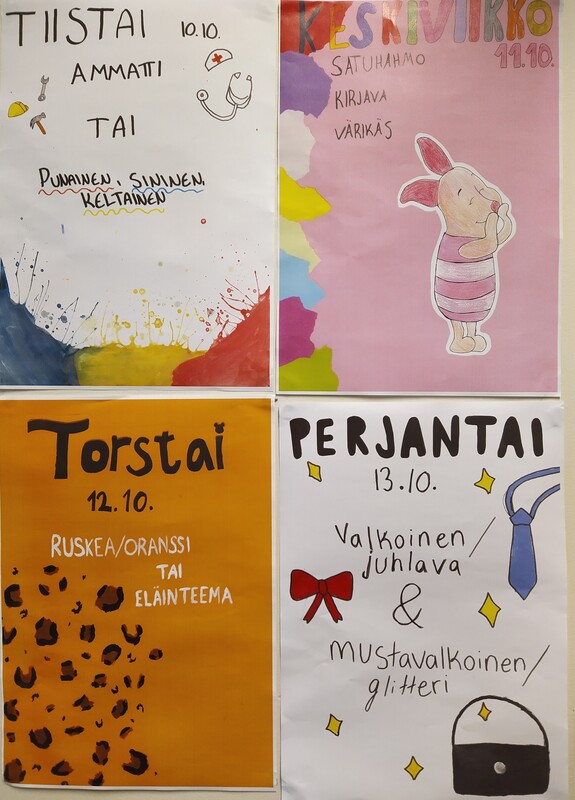 TIISTAI 10.10.
AMMATTI
TAI
PUNAINEN, SININEN,
KELTAINEN
KESKIVIIKKO
11.10.
SATUHAHMO
KIRJAVA
VÄRIKÄS
Torstai
12.10.
RUSKEA/ORANSSI
TAI
ELÄINTEEMA
PERJANTAI
13.10.
Valkoinen/
juhlava
&
mustavalkoinen/
glitteri